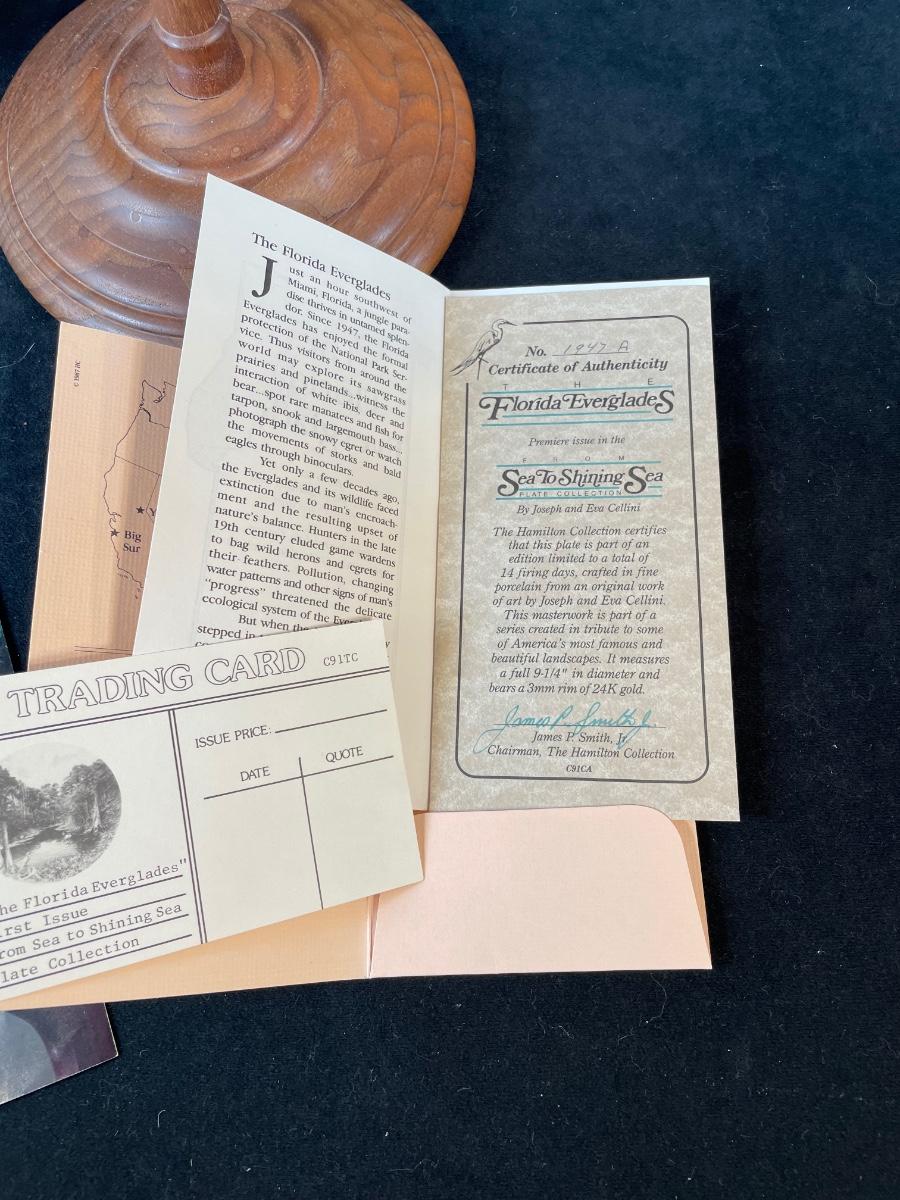 The Florida Everglades
Just an hour southwest of
Miami, Florida, a jungle para-
dise thrives in untamed splen-
dor. Since 1947, the Florida
Everglades has enjoyed the formal
protection of the National Park Ser-
vice. Thus visitors from around the
world may explore its sawgrass
prairies and pinelands...witness the
interaction of white ibis, deer and
bear...spot rare manatees and fish for
tarpon, snook and largemouth bass...
photograph the snowy egret or watch
the movements of storks and bald
eagles through binoculars.
Yet only a few decades ago,
the Everglades and its wildlife faced
extinction due to man's encroach-
ment and the resulting upset of
nature's balance. Hunters in the late
19th century eluded game wardens
to bag wild herons and egrets for
their feathers. Pollution, changing
water patterns and other signs of man's
"progress" threatened the delicate
ecological system of the
But when the
stepped in
No. 1947 A
Certificate of Authenticity
THE
Florida Everglades
Premiere issue in the
FROM
Sea To Shining Sea
PLATE COLLECTION
By Joseph and Eva Cellini
The Hamilton Collection certifies
that this plate is part of an
edition limited to a total of
14 firing days, crafted in fine
porcelain from an original work
of art by Joseph and Eva Cellini.
This masterwork is part of a
series created in tribute to some
of America's most famous and
beautiful landscapes. It measures
a full 9-1/4" in diameter and
bears a 3mm rim of 24K gold.
James P. Smith Jr.
James P. Smith, Jr.
Chairman, The Hamilton Collection
C91CA
© 1987 HC
Big
Sur
TRADING CARD C91TC
ISSUE PRICE:
DATE QUOTE
he Florida Everglades"
rst Issue
rom Sea to Shining Sea
late Collection